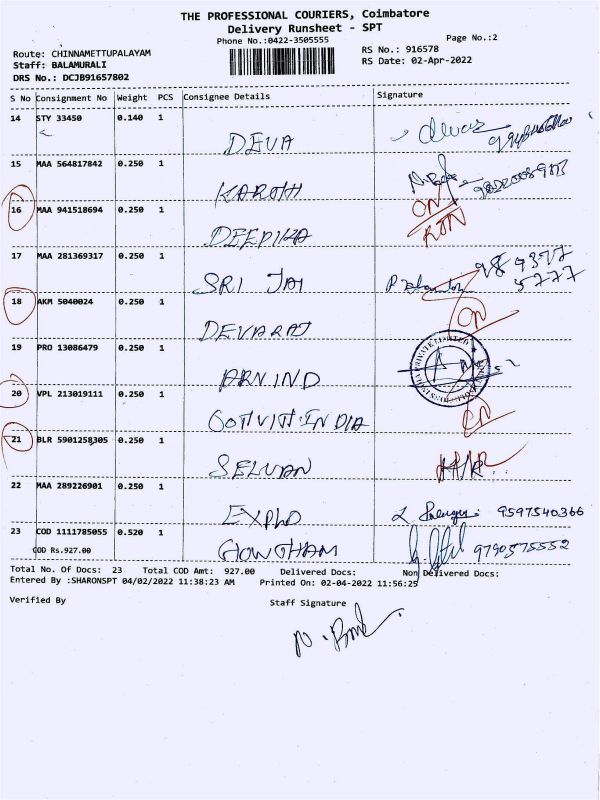 THE PROFESSIONAL COURIERS, Coimbatore
Delivery Runsheet - SPT
Phone No.:0422-3505555
Page No.:2
Route: CHINNAMETTUPALAYAM
RS No.: 916578
Staff: BALAMURALI
RS Date: 02-Apr-2022
DRS No.: DCJB91657802
S No Consignment No Weight PCS Consignee Details Signature
14 STY 33450 0.140 1
DEVA
15 MAA 564817842 0.250 1
16 MAA 941518694 0.250 1
DEEPIKA
17 MAA 281369317 0.250 1
SRI JAI
18 AKM 5040024 0.250 1
DEVARAJ
19 PRO 13086479 0.250 1
ARVIND
20 VPL 213019111 0.250 1
INDIA
21 BLR 5901258305 0.250 1
SELVAN
22 MAA 289226901 0.250 1
EXPLO 9597540366
23 COD 1111785055 0.520 1
COD Rs.927.00
GOWGHAM 9790575552
Total No. Of Docs: 23 Total COD Amt: 927.00 Delivered Docs: Non Delivered Docs:
Entered By :SHARONSPT 04/02/2022 11:38:23 AM Printed On: 02-04-2022 11:56:25
Verified By Staff Signature